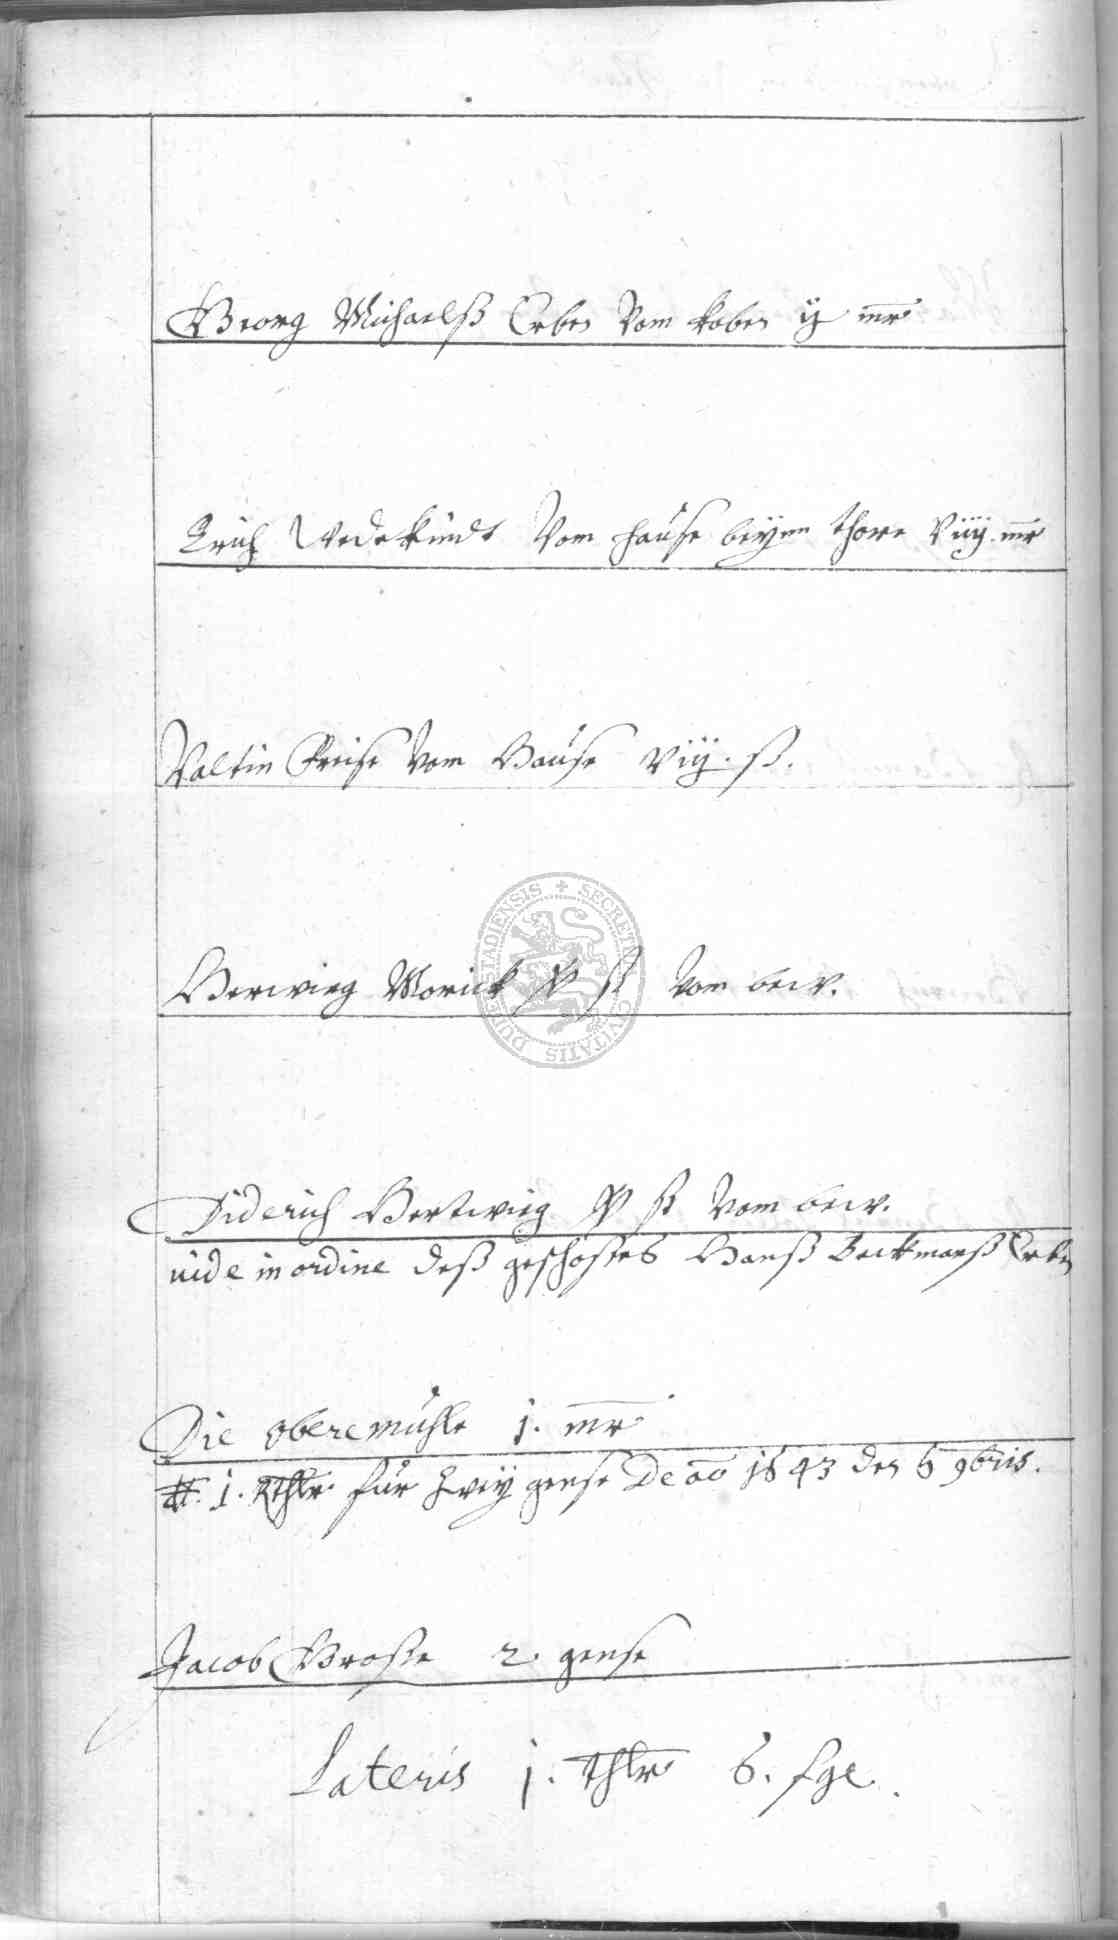 Georg Michaelß Erben Vom koben ij mr
Erich Wedekindt Vom hause beÿm thore Viij. mr
Valtin Preise Vom Hause Viij. ß.
Herwieg Morick ß Vom berv.
Diderich Hertwieg ß Vom berv.
uide in ordine deß geschoßes Hanß Beckmanß Erben
Die obere mühle j. mr
j. Rthlr für Zweÿ gense De ao 1643 den 6 9bris.
Jacob Große 2. gense
Lateris j. thlr 6. sgl.
SECRETUM CIVITATIS DUDERSTADIENSIS